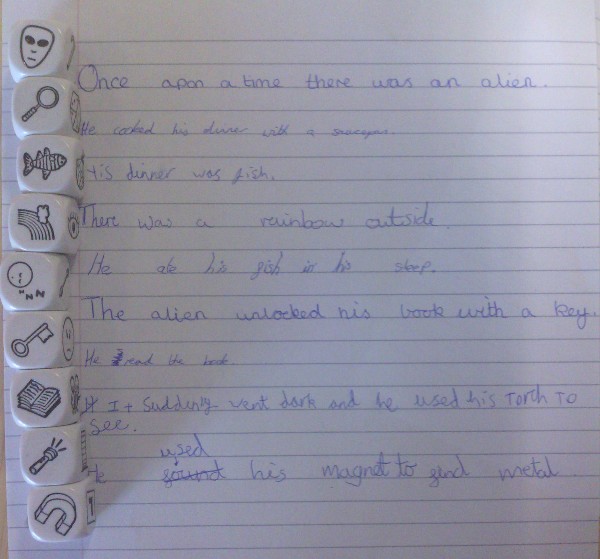 Once apon a time there was an alien.
He cooked his dinner with a saucepan.
His dinner was fish.
There was a rainbow outside.
He ate his fish in his sleep.
The alien unlocked his book with a key.
He read the book.
It Suddenly went dark and he used his TorCh To
See.
used
He found his magnet to find metal.